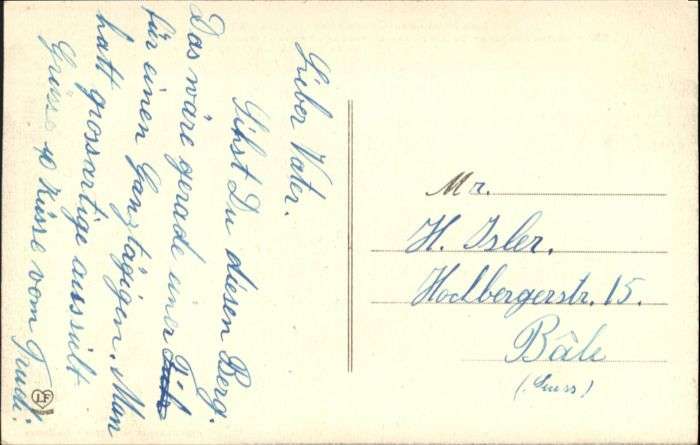 Lieber Vater.
Sihst Du diesen Berg.
Das wäre gerade einer
für einen Ganztägigen. Man
hatt grossartige aussiht
Grüsse & Küsse vom Trudi.
Mr.
H. Isler.
Hochbergerstr. 15.
Bâle
(Suiss)
LF